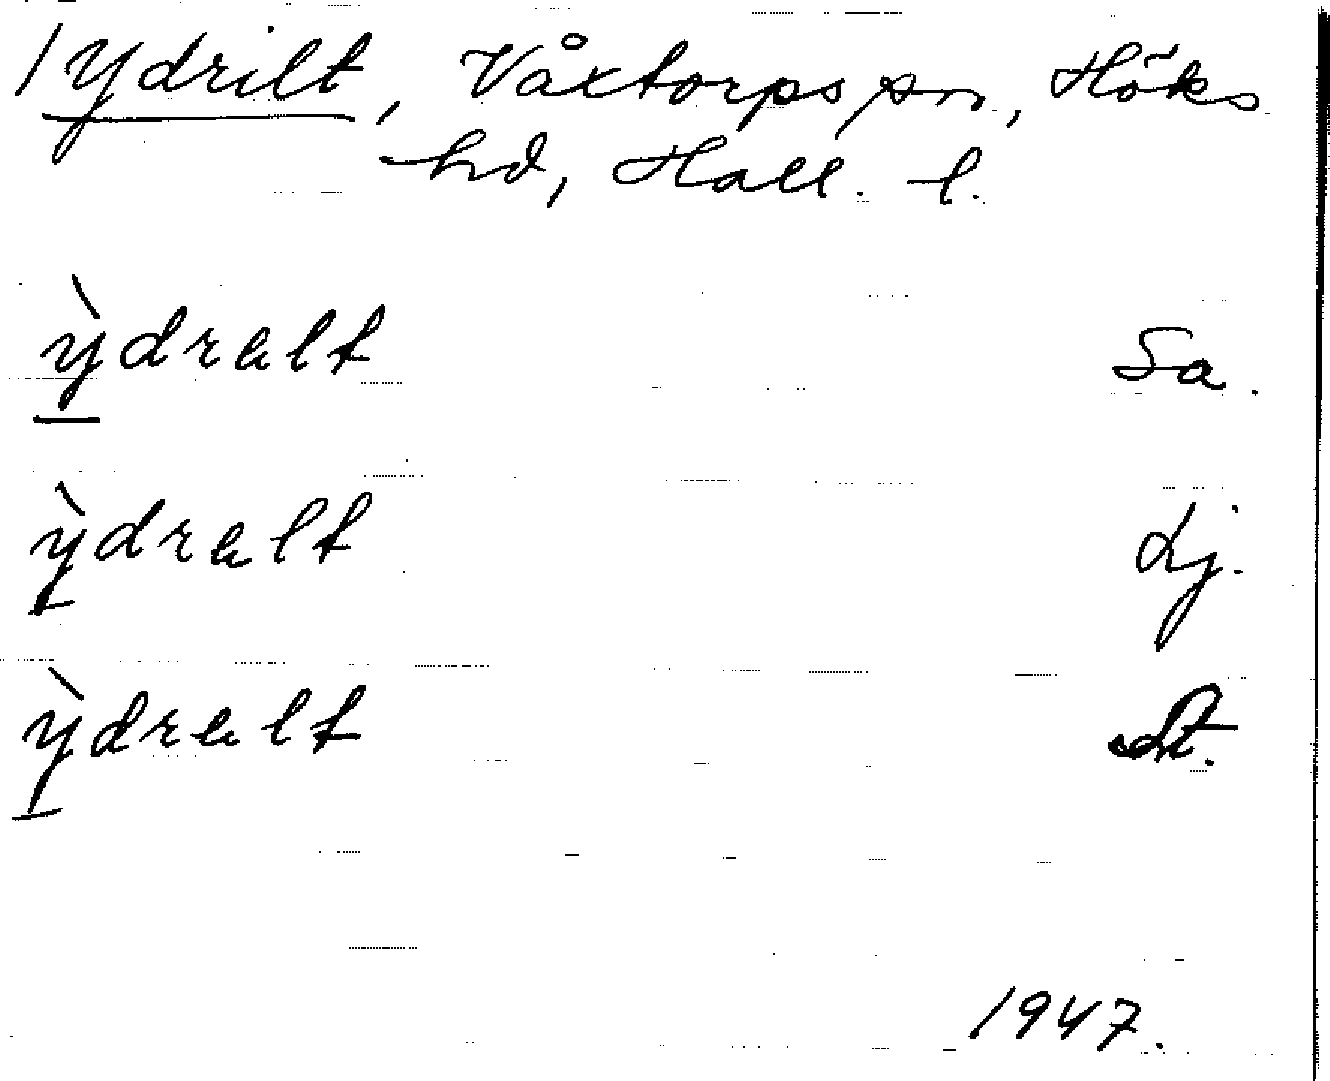 / Ydrilt, Våxtorps sn, Höks
hd, Hall. l.
ỳdrælt Sa.
ỳdrælt Lj.
ỳdrælt
1947.